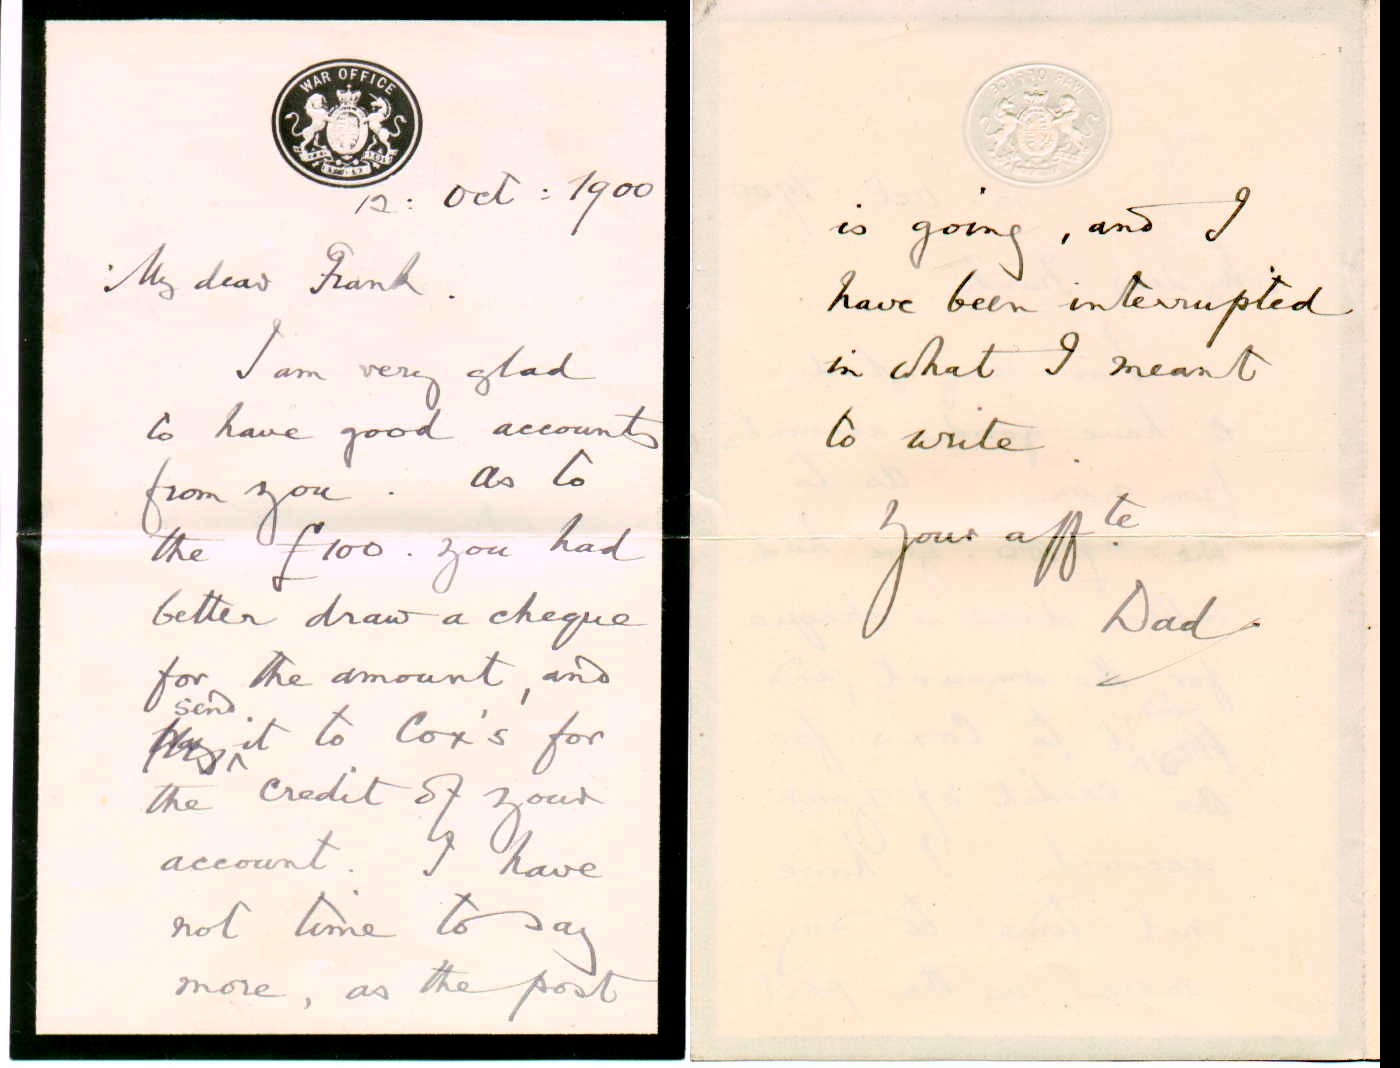 WAR OFFICE
12: Oct: 1900
My dear Frank.
I am very glad
to have good accounts
from you. As to
the £100. you had
better draw a cheque
for the amount, and
send
it to Cox's for
the credit of your
account. I have
not time to say
more, as the post
WAR OFFICE
is going, and I
have been interrupted
in what I meant
to write.
Your affte
Dad